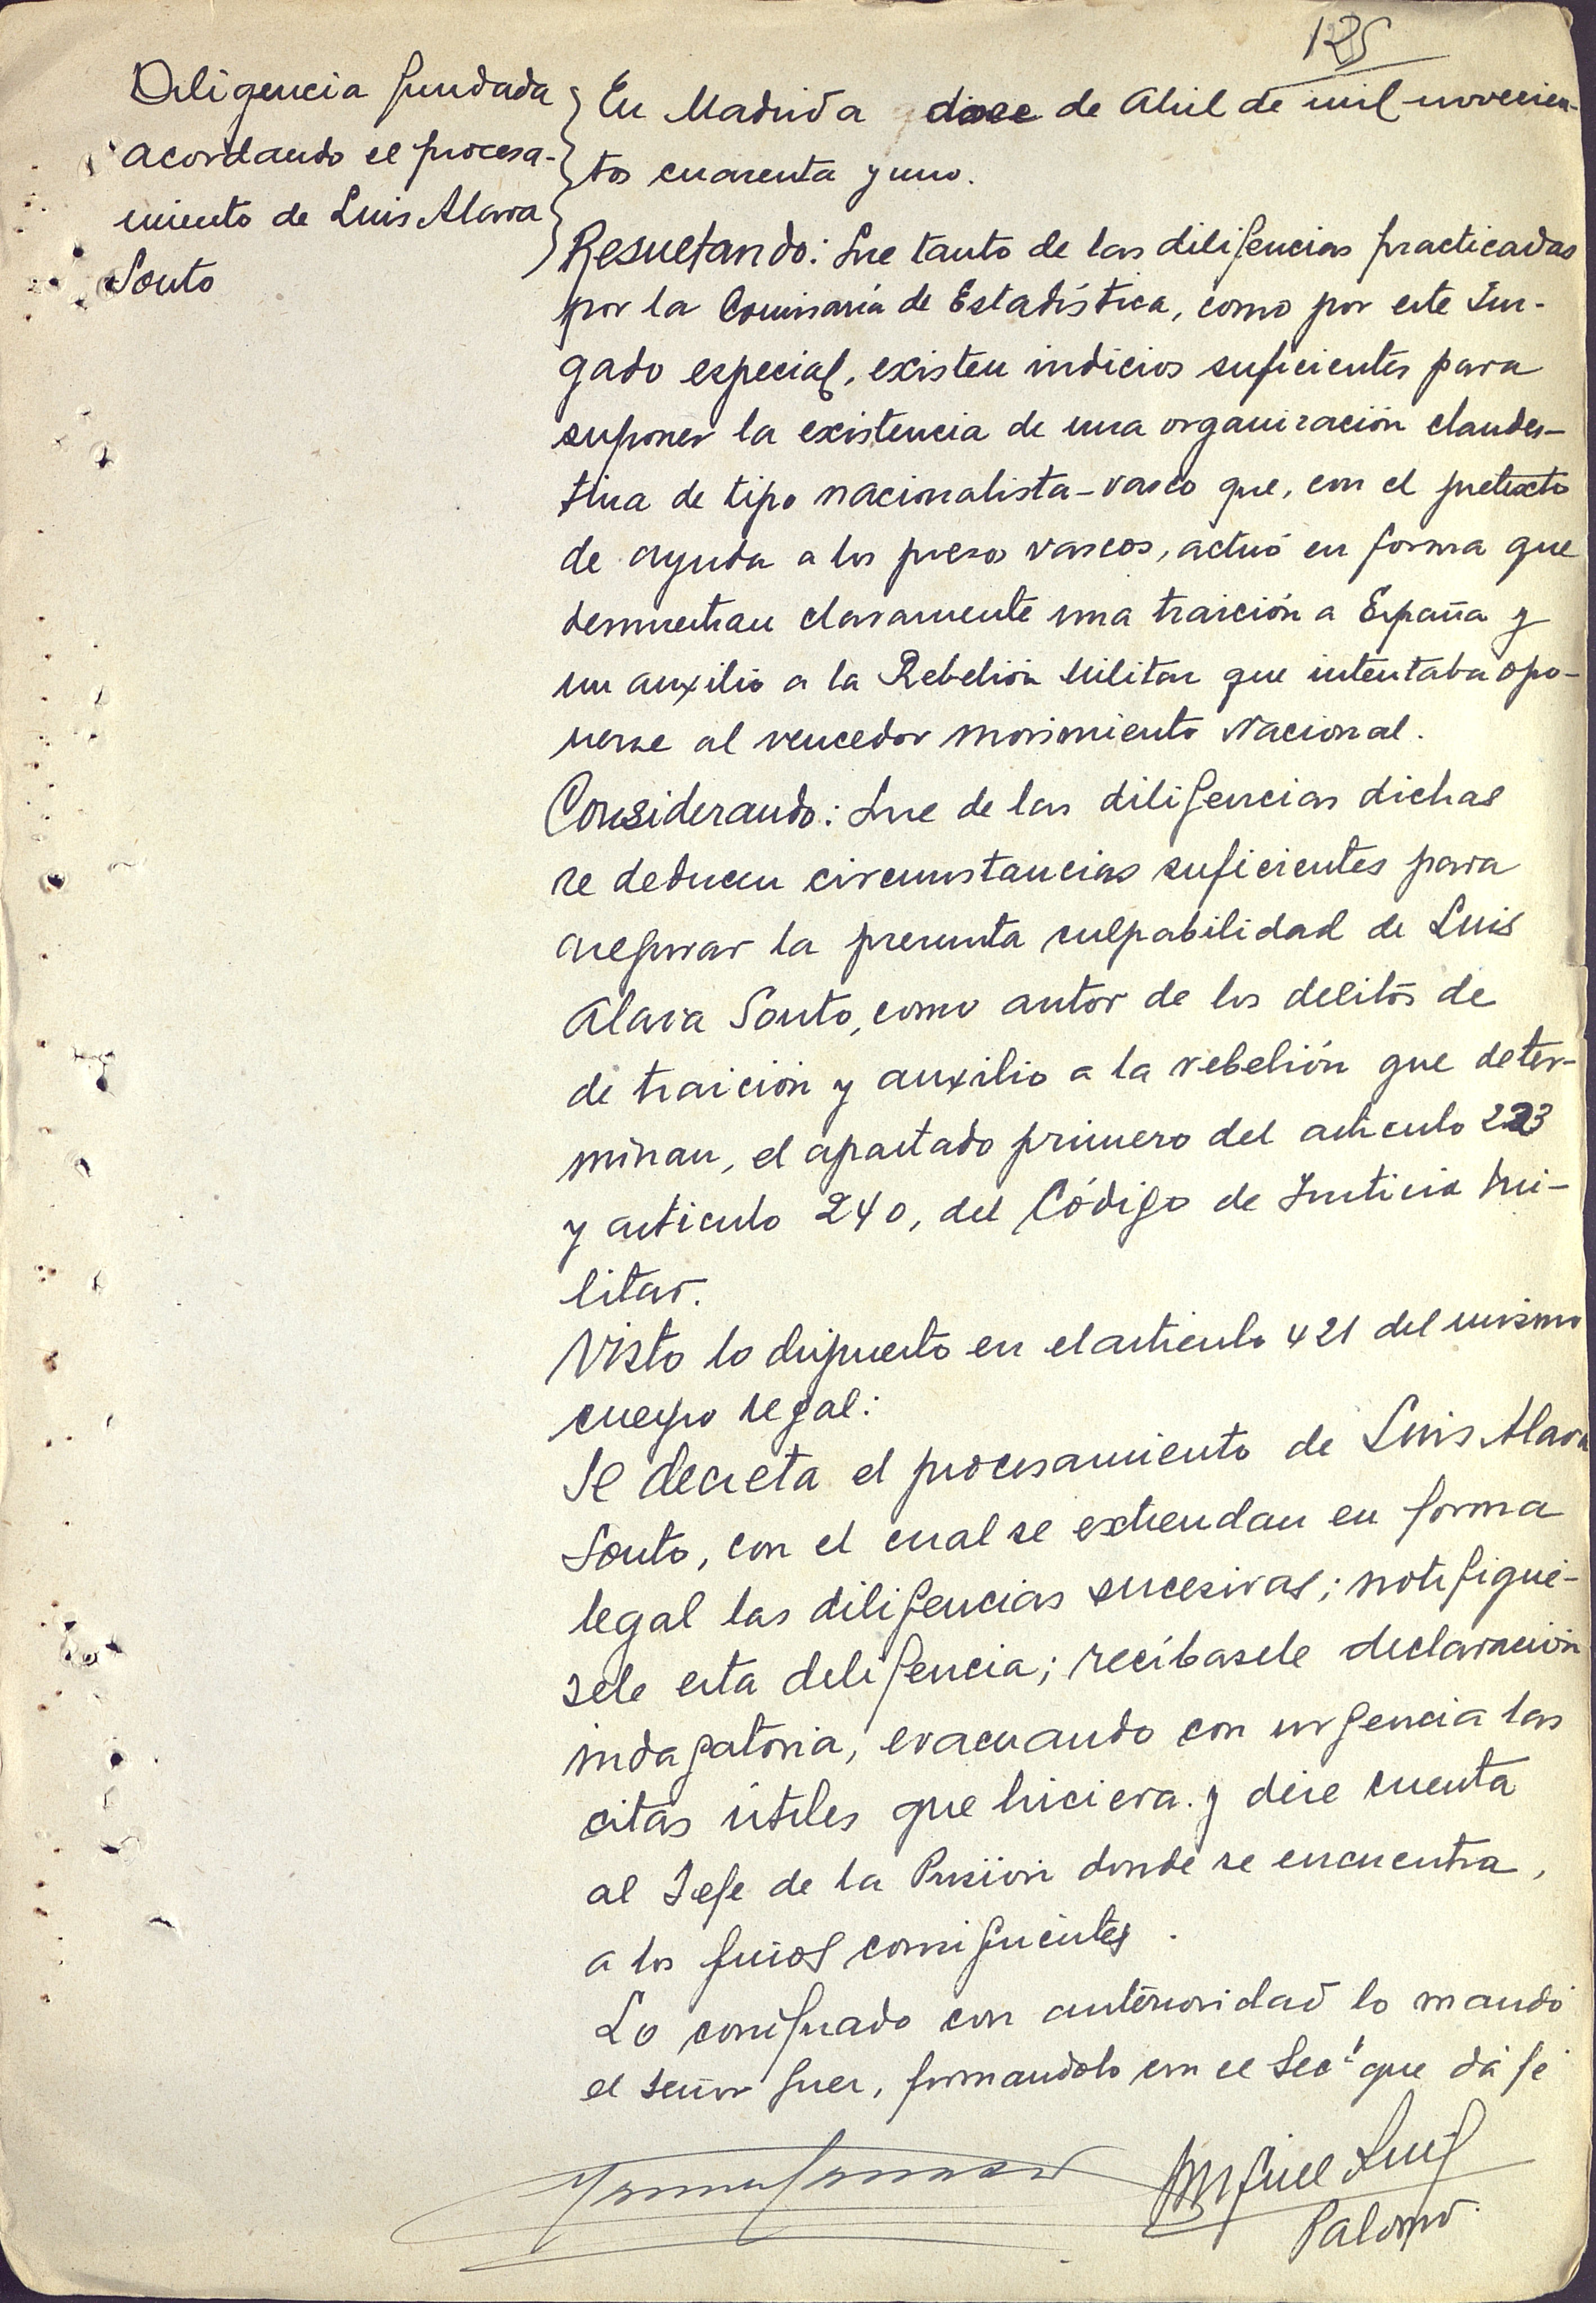 125
Diligencia fundada
acordando el procesa-
miento de Luis Alava
Souto
En Madrid a doce de Abril de mil novecien-
tos cuarenta y uno.
Resultando: Que tanto de las diligencias practicadas
por la Comisaría de Estadística, como por este Juz-
gado especial, existen indicios suficientes para
suponer la existencia de una organización clandes-
tina de tipo nacionalista-vasco que, con el pretexto
de ayuda a los presos vascos, actuó en forma que
demuestran claramente una traición a España y
un auxilio a la Rebelión Militar que intentaba opo-
nerse al vencedor Movimiento Nacional.
Considerando: Que de las diligencias dichas
se deducen circunstancias suficientes para
asegurar la presunta culpabilidad de Luis
Alava Souto, como autor de los delitos de
de traición y auxilio a la rebelión que deter-
minan, el apartado primero del articulo 223
y articulo 240, del Código de Justicia Mi-
litar.
Visto lo dispuesto en el articulo 421 del mismo
cuerpo legal:
Se decreta el procesamiento de Luis Alava
Souto, con el cual se extiendan en forma
legal las diligencias sucesivas; notifiqué-
sele esta diligencia; recíbasele declaración
indagatoria, evacuando con urgencia las
citas útiles que hiciera. y dése cuenta
al Jefe de la Prisión donde se encuentra,
a los fines consiguientes.
Lo consignado con anterioridad lo mandó
el señor Juez, firmandolo con el Secº que dá fé
Miguel Luis
Palomo